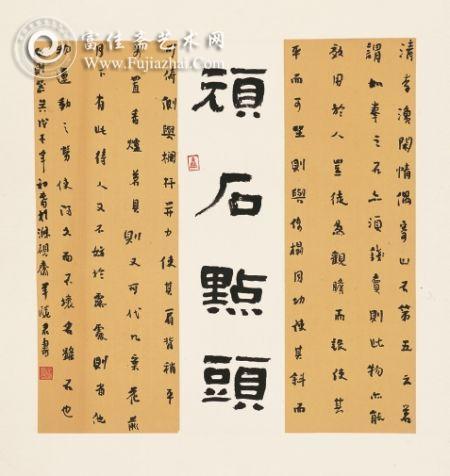 富佳斋艺术网
www.Fujiazhai.com
清李漁閑情偶寄山石第五云若
謂如拳之石亦須錢買則此物亦能
效用於人豈徒爲觀瞻而設使其
平而可坐則與椅榻同功使其斜而
頑石點頭
可倚則與欄杆并力使其肩背稍平
可置香爐茗具則又可代几案花前
月下有此待人又不妨於露處則省他
物運動之勞使得久而不壞名雖石也
戊子年初春於硯齋羊曉君書